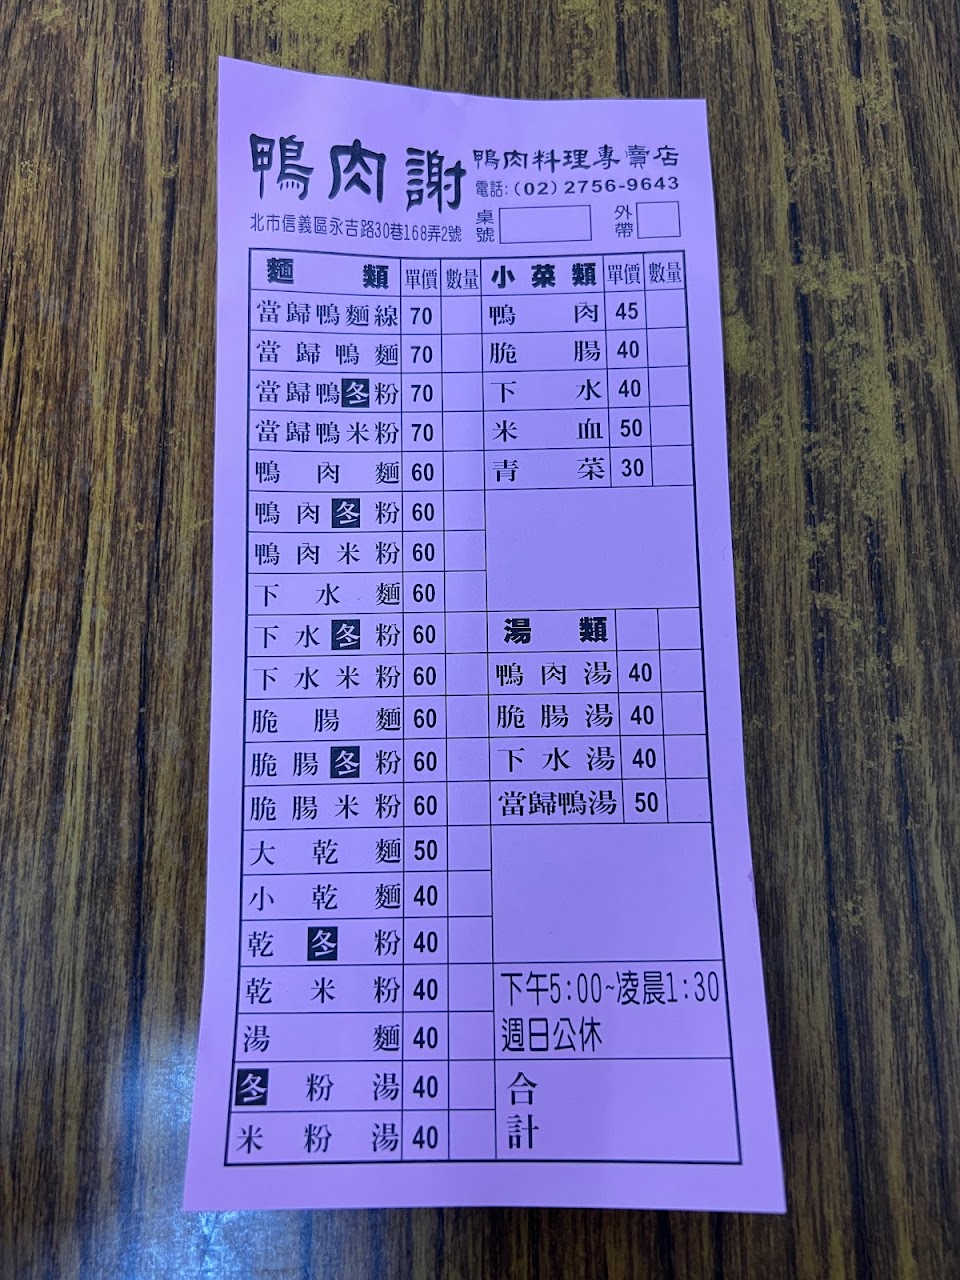 鴨肉謝 鴨肉料理專賣店
電話:(02)2756-9643
北市信義區永吉路30巷168弄2號
桌號
外帶
麵類 單價 數量
當歸鴨麵線 70
當歸鴨麵 70
當歸鴨冬粉 70
當歸鴨米粉 70
鴨肉麵 60
鴨肉冬粉 60
鴨肉米粉 60
下水麵 60
下水冬粉 60
下水米粉 60
脆腸麵 60
脆腸冬粉 60
脆腸米粉 60
大乾麵 50
小乾麵 40
乾冬粉 40
乾米粉 40
湯麵 40
冬粉湯 40
米粉湯 40
小菜類 單價 數量
鴨肉 45
脆腸 40
下水 40
米血 50
青菜 30
湯類
鴨肉湯 40
脆腸湯 40
下水湯 40
當歸鴨湯 50
下午5:00~凌晨1:30
週日公休
合計